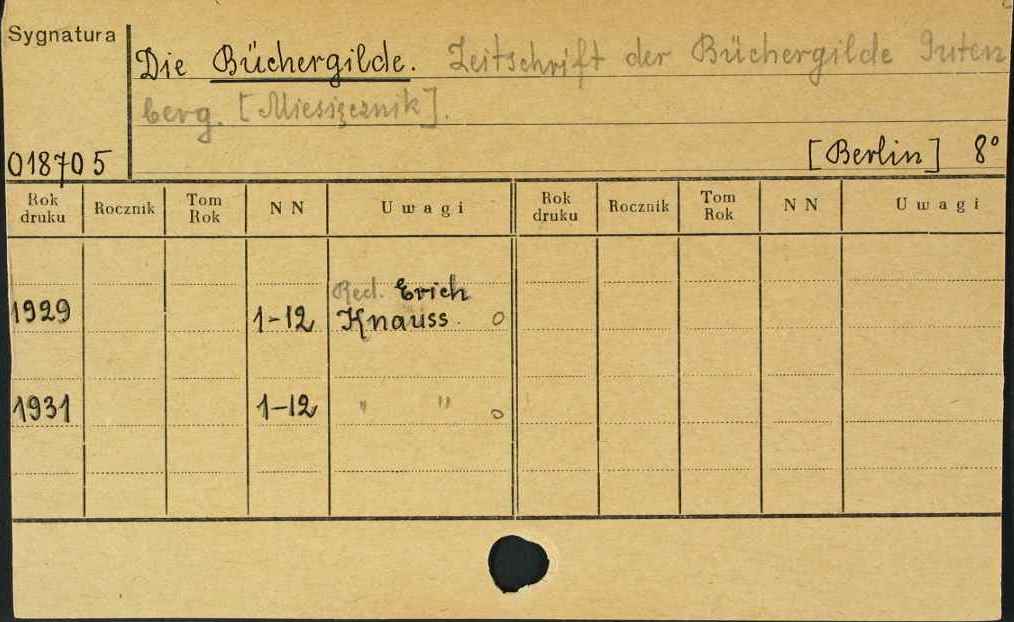 Sygnatura
Die Büchergilde. Zeitschrift der Büchergilde Guten
berg. [Miesięcznik].
018705
[Berlin] 8°
Rok druku Rocznik Tom Rok NN Uwagi Rok druku Rocznik Tom Rok NN Uwagi
Red. Erich
1929 1-12 Knauss. o
1931 1-12 " " o